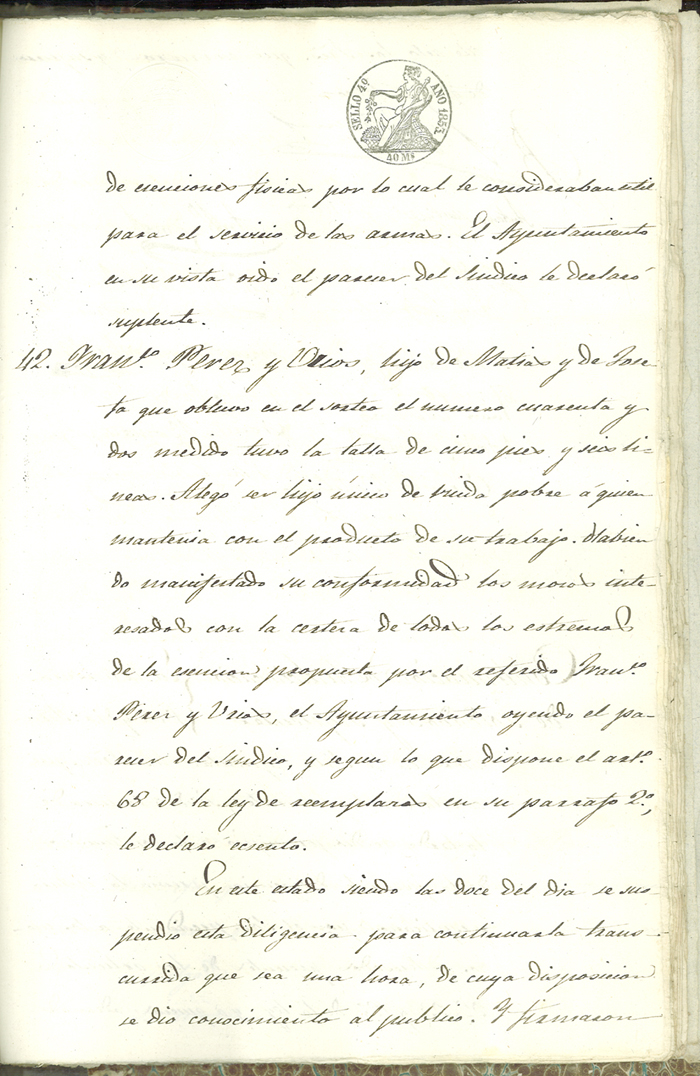 SELLO 4º AÑO 1855.
40 Ms
de esenciones fisicas por lo cual le consideraban util
para el servicio de las armas. El Ayuntamiento
en su vista oido el parecer del Sindico le declaró
suplente.
42. Franco. Perez y Urios, hijo de Matias y de Jose-
fa que obtuvo en el sorteo el numero cuarenta y
dos medido tuvo la talla de cinco pies y seis li-
neas. Alegó ser hijo único de viuda pobre á quien
mantenia con el producto de su trabajo. Habien
do manifestado su conformidad los mozos inte-
resados con la certeza de todos los estremos
de la esencion propuesta por el referido Franco.
Perez y Urios, el Ayuntamiento oyendo el pa-
recer del Sindico, y segun lo que dispone el arto.
68 de la ley de reemplazos en su parrafo 2º,
le declaró esento.
En este estado siendo las doce del dia se sus
pendio esta diligencia para continuarla trans-
currida que sea una hora, de cuya disposicion
se dio conocimiento al publico. Y firmaron